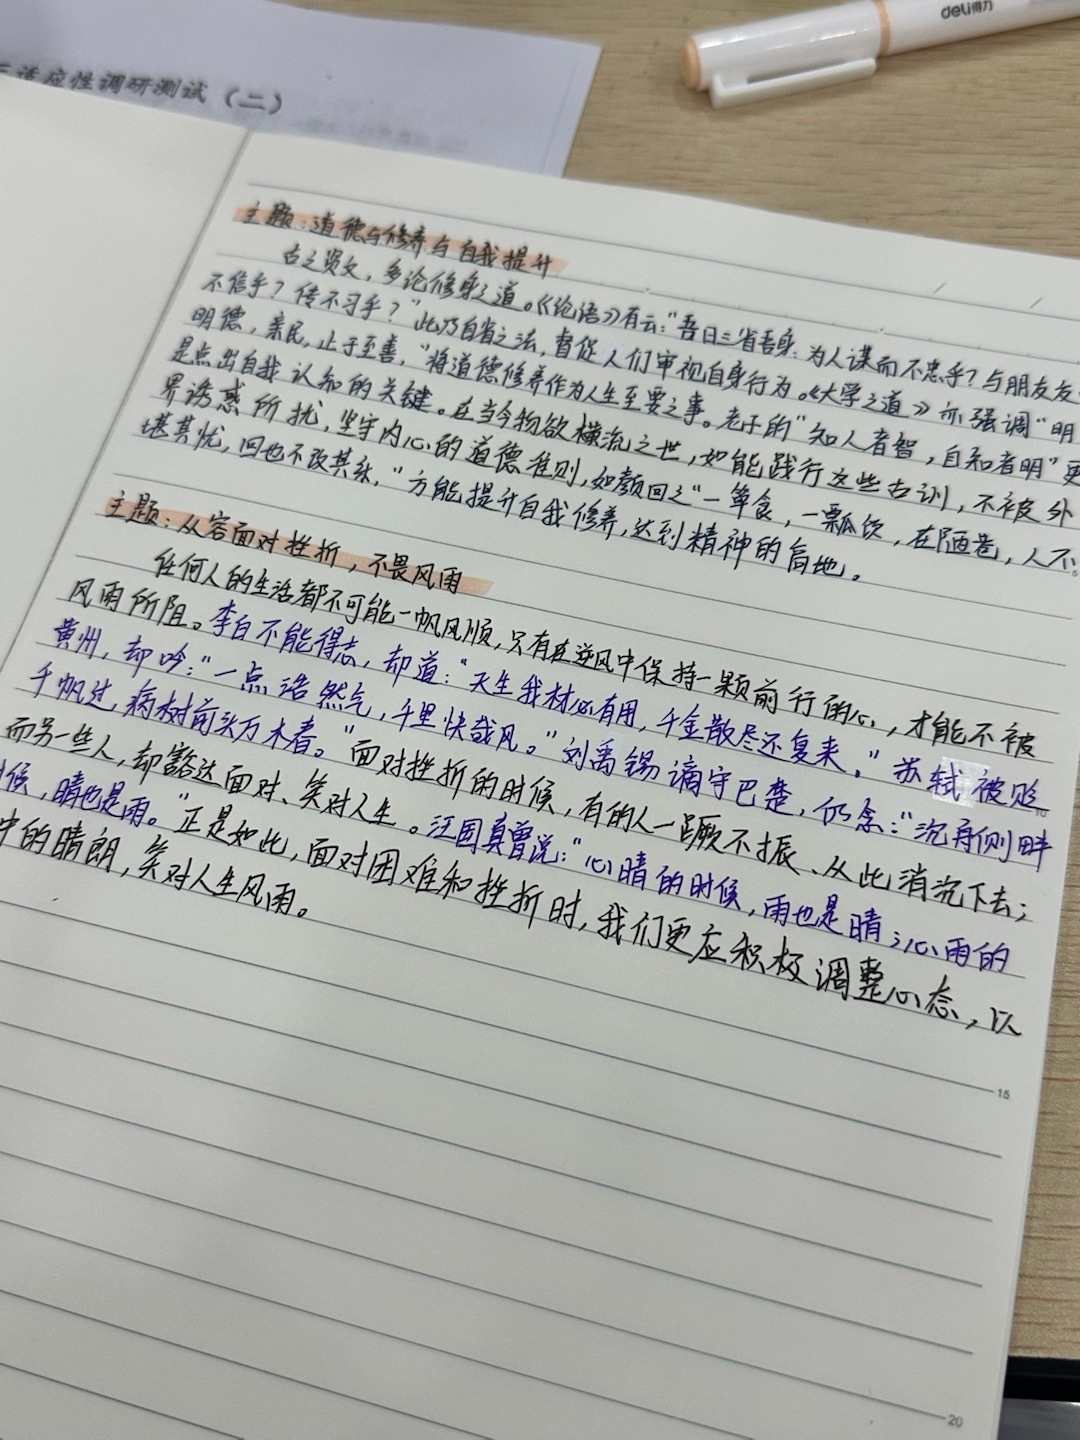 deli得力
适应性调研测试（二）
主题：道德与修养与自我提升
古之贤文，多论修身之道。《论语》有云："吾日三省吾身：为人谋而不忠乎？与朋友交
不信乎？传不习乎？"此乃自省之法，督促人们审视自身行为。《大学之道》亦强调"明
明德，亲民，止于至善，"将道德修养作为人生至要之事。老子的"知人者智，自知者明"更
是点出自我认知的关键。在当今物欲横流之世，如能践行这些古训，不被外
界诱惑所扰，坚守内心的道德准则，如颜回之"一箪食，一瓢饮，在陋巷，人不
堪其忧，回也不改其乐，"方能提升自我修养，达到精神的高地。
主题：从容面对挫折，不畏风雨
任何人的生活都不可能一帆风顺，只有在逆风中保持一颗前行的心，才能不被
风雨所阻。李白不能得志，却道："天生我材必有用，千金散尽还复来。"苏轼被贬
黄州，却吟："一点浩然气，千里快哉风。"刘禹锡谪守巴楚，仍念："沉舟侧畔
千帆过，病树前头万木春。"面对挫折的时候，有的人一蹶不振、从此消沉下去；
而另一些人，却豁达面对、笑对人生。汪国真曾说："心晴的时候，雨也是晴；心雨的
时候，晴也是雨。"正是如此，面对困难和挫折时，我们更应积极调整心态，以
中的晴朗，笑对人生风雨。
10
15
20